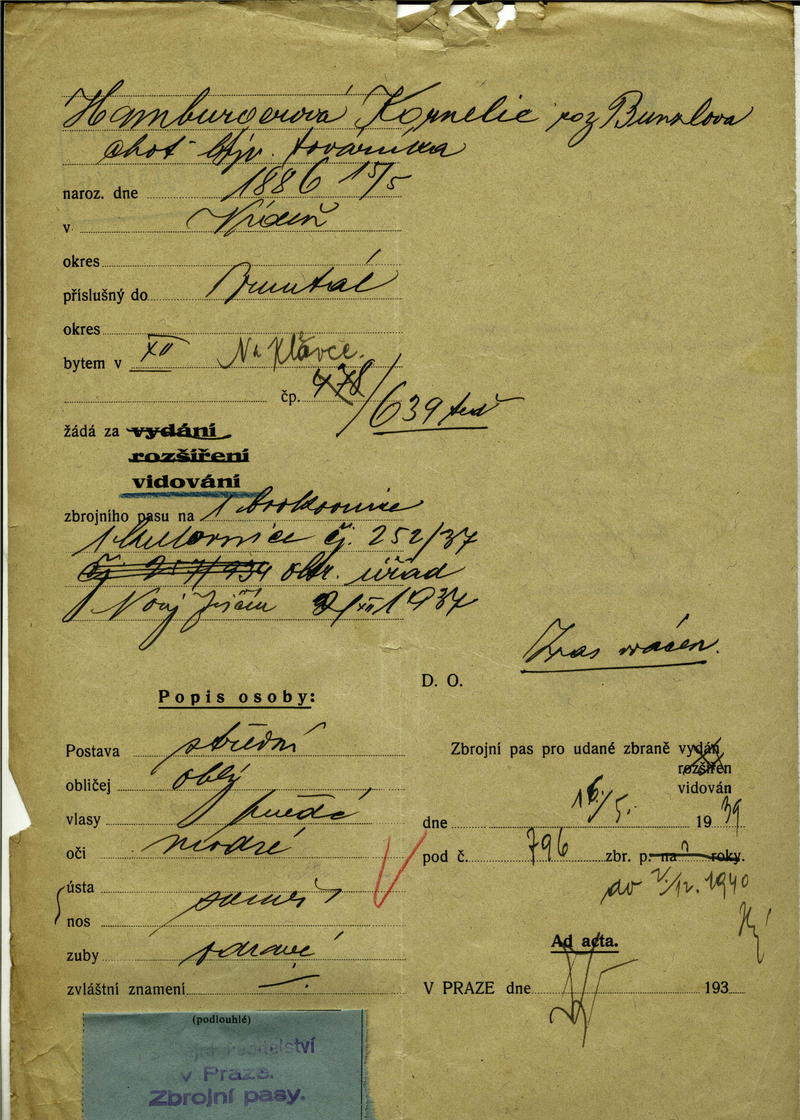 Hamburgerová Kornelie roz Bunzlova
choť býv. továrníka
naroz. dne 1886 15/5
v Vídeň
okres
příslušný do Bruntál
okres
bytem v XII Na Klaovce.
čp. 478/639 teď
žádá za vydání
rozšíření
vidování
zbrojního pasu na 1 brokovnice
1 kulovnice čj. 252/37
čj 257/934 okr. úřad
Nový Jičín 2/XII 1937
Zpas vrácen.
D. O.
Popis osoby:
Postava střední
obličej oblý
vlasy hnědé
oči modré
ústa
nos souměr
zuby zdravé
zvláštní znamení
Zbrojní pas pro udané zbraně vydán
rozšířen
vidován
dne 16/5. 1939
pod č. 796 zbr. p. na roky.
do 2/12. 1940
Ad acta.
V PRAZE dne 193
(podlouhlé)
ředitelství
v Praze.
Zbrojní pasy.